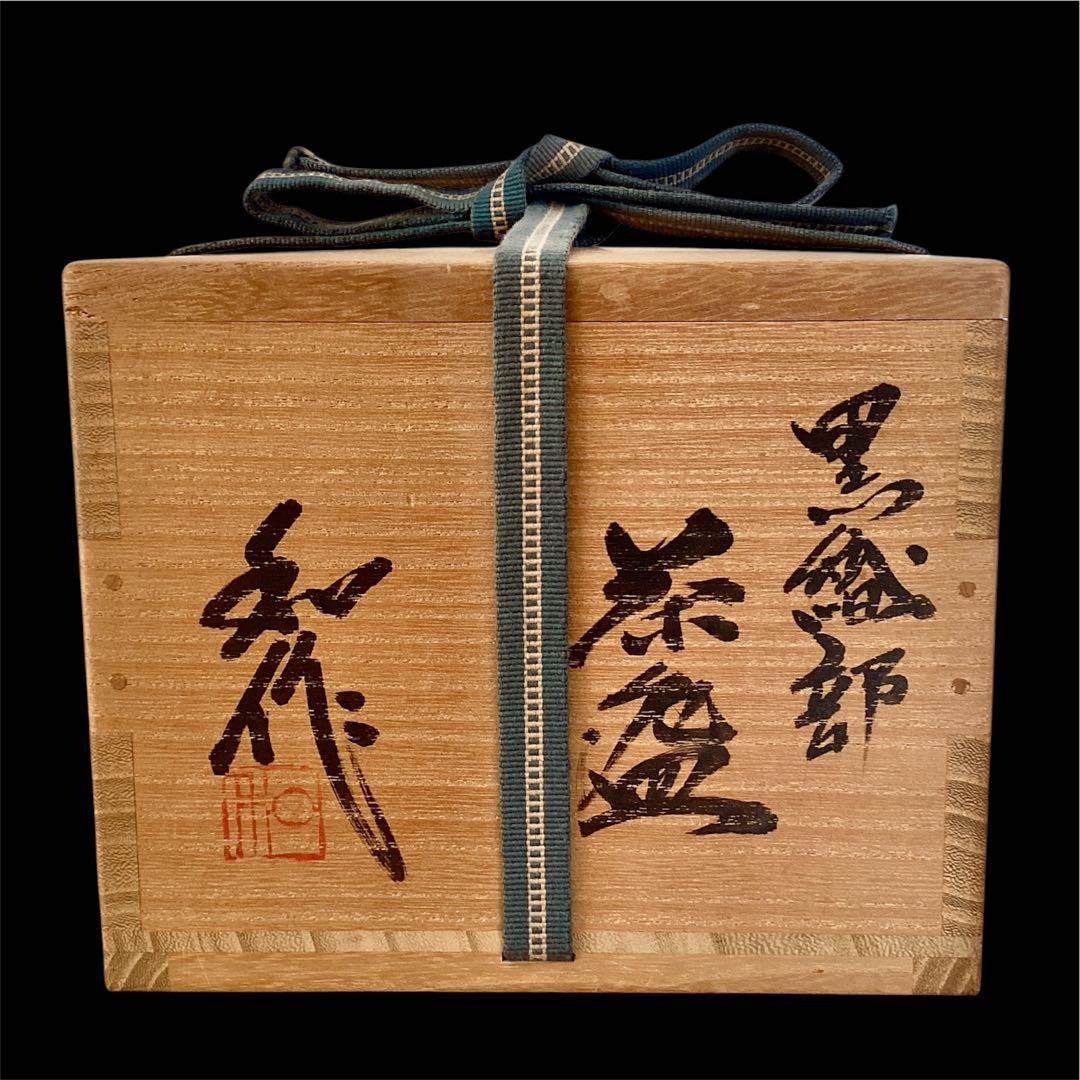 黒織部
茶盌
和作